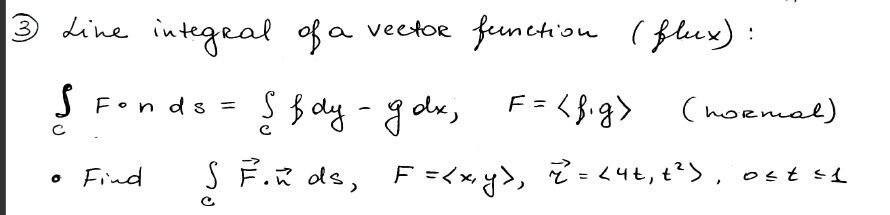 ③ Line integral of a vector function (flux):
∫_C F∘n ds = ∫_C f dy - g dx, F = <f,g> (normal)
• Find ∫_C F⃗.n⃗ ds, F = <x,y>, r⃗ = <4t, t²>, 0≤t≤1